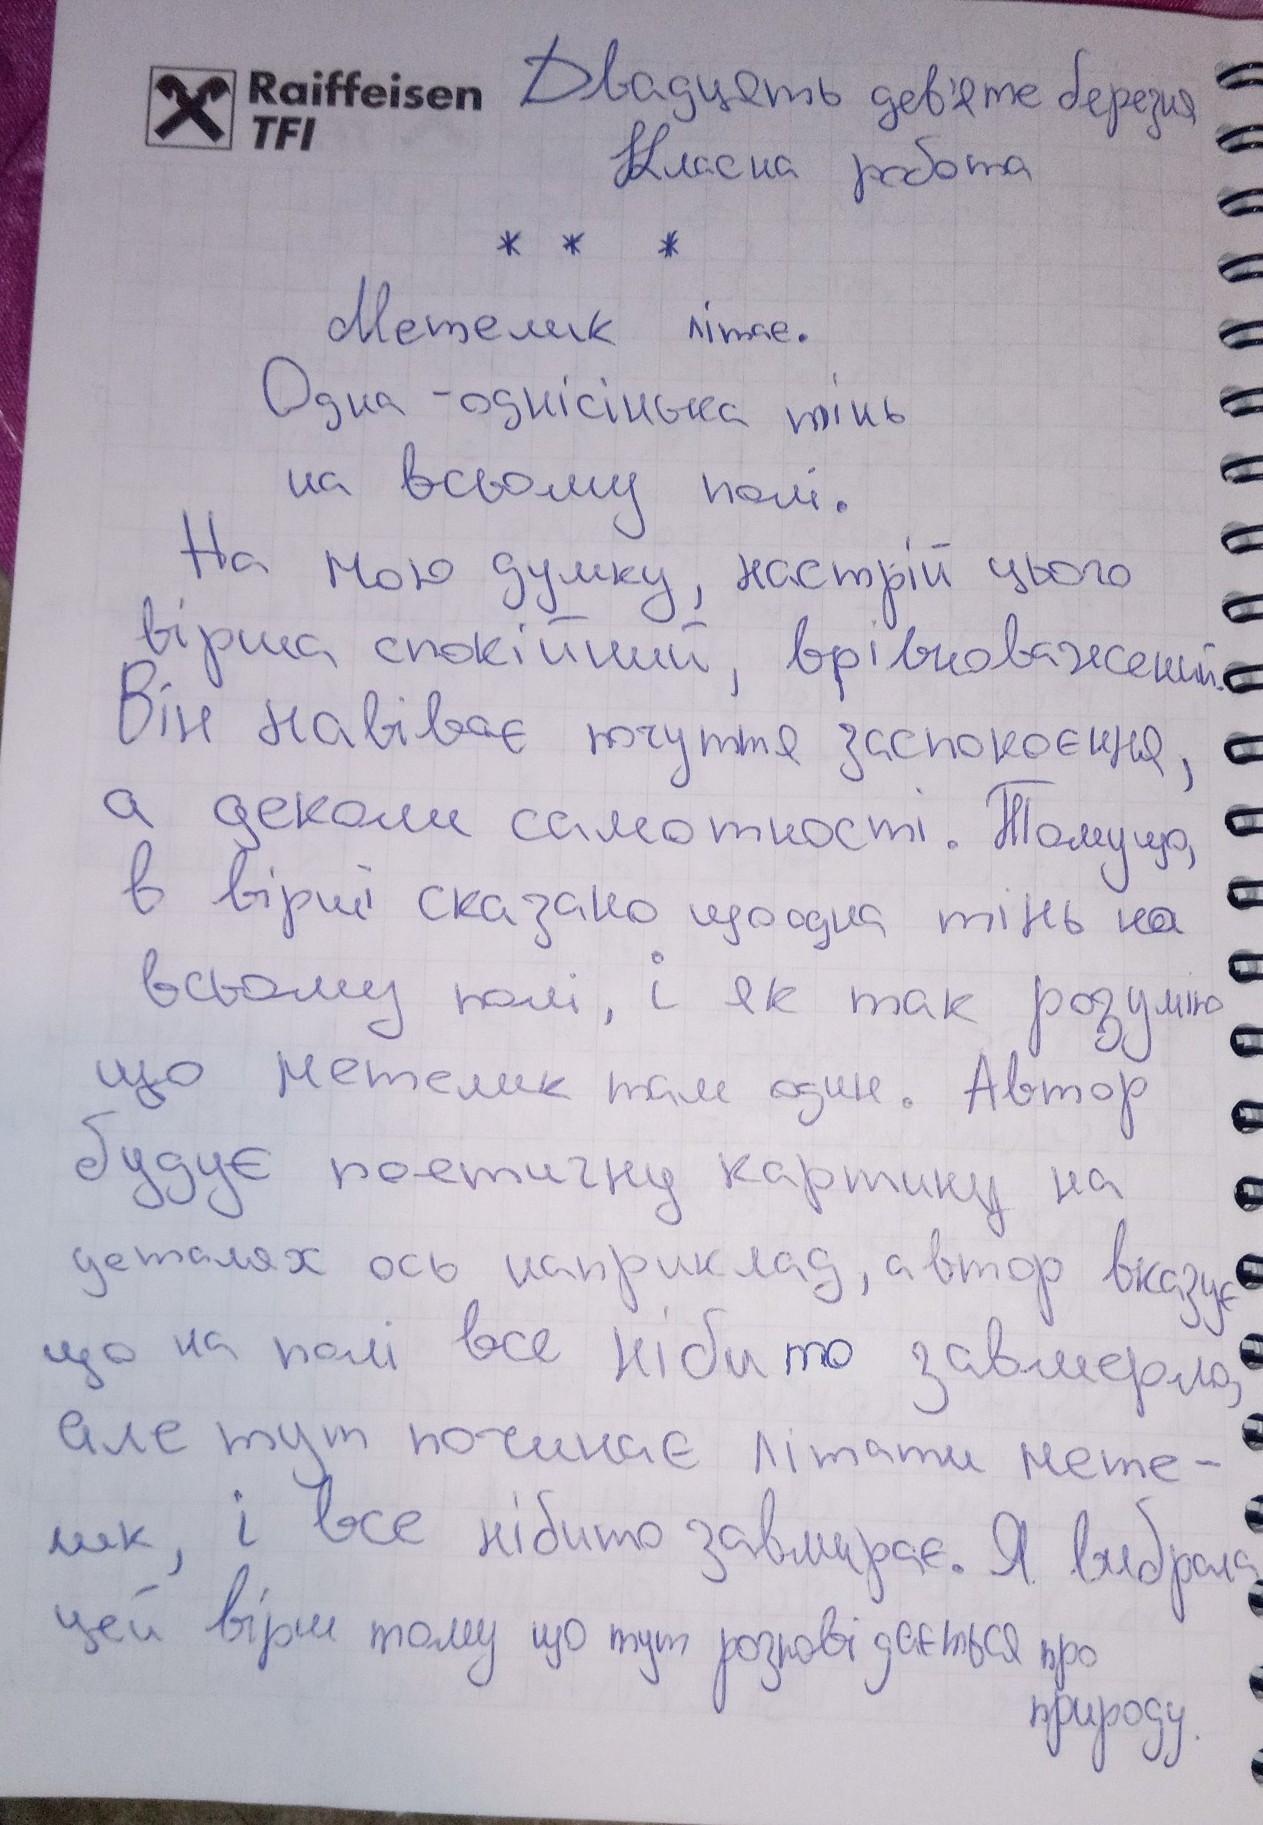 Raiffeisen
TFI
Двадцять дев'яте березня
Класна робота
* * *
Метелик літає.
Одна-однісінька тінь
на всьому полі.
На мою думку, настрій цього
вірша спокійний, врівноважений.
Він навіває почуття заспокоєння,
а деколи самотності. Томущо,
в вірші сказано щоодна тінь на
всьому полі, і як так розумію
що метелик там один. Автор
будує поетичну картину на
деталях ось наприклад, автор вказує
що на полі все нібито завмерло,
але тут починає літати мете-
лик, і все нібито завмирає. Я вибрала
цей вірш тому що тут розповідається про
природу.